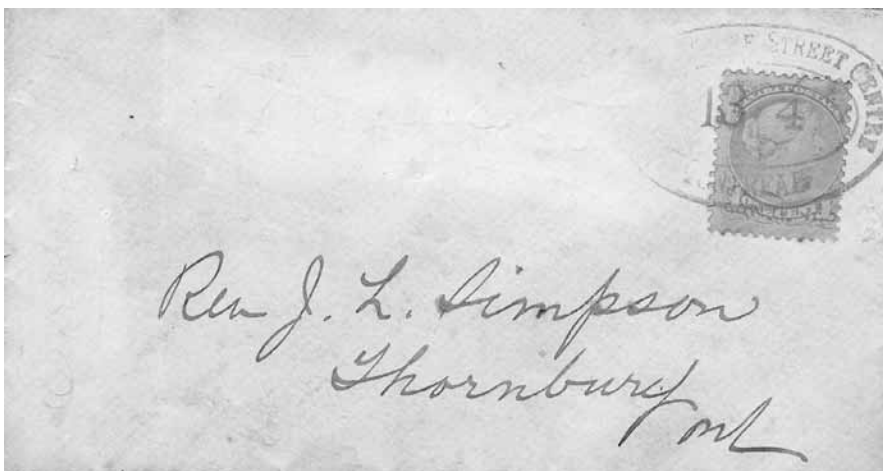 STREET CENTRE
13 4
Rev J. L. Simpson
Thornbury
Ont